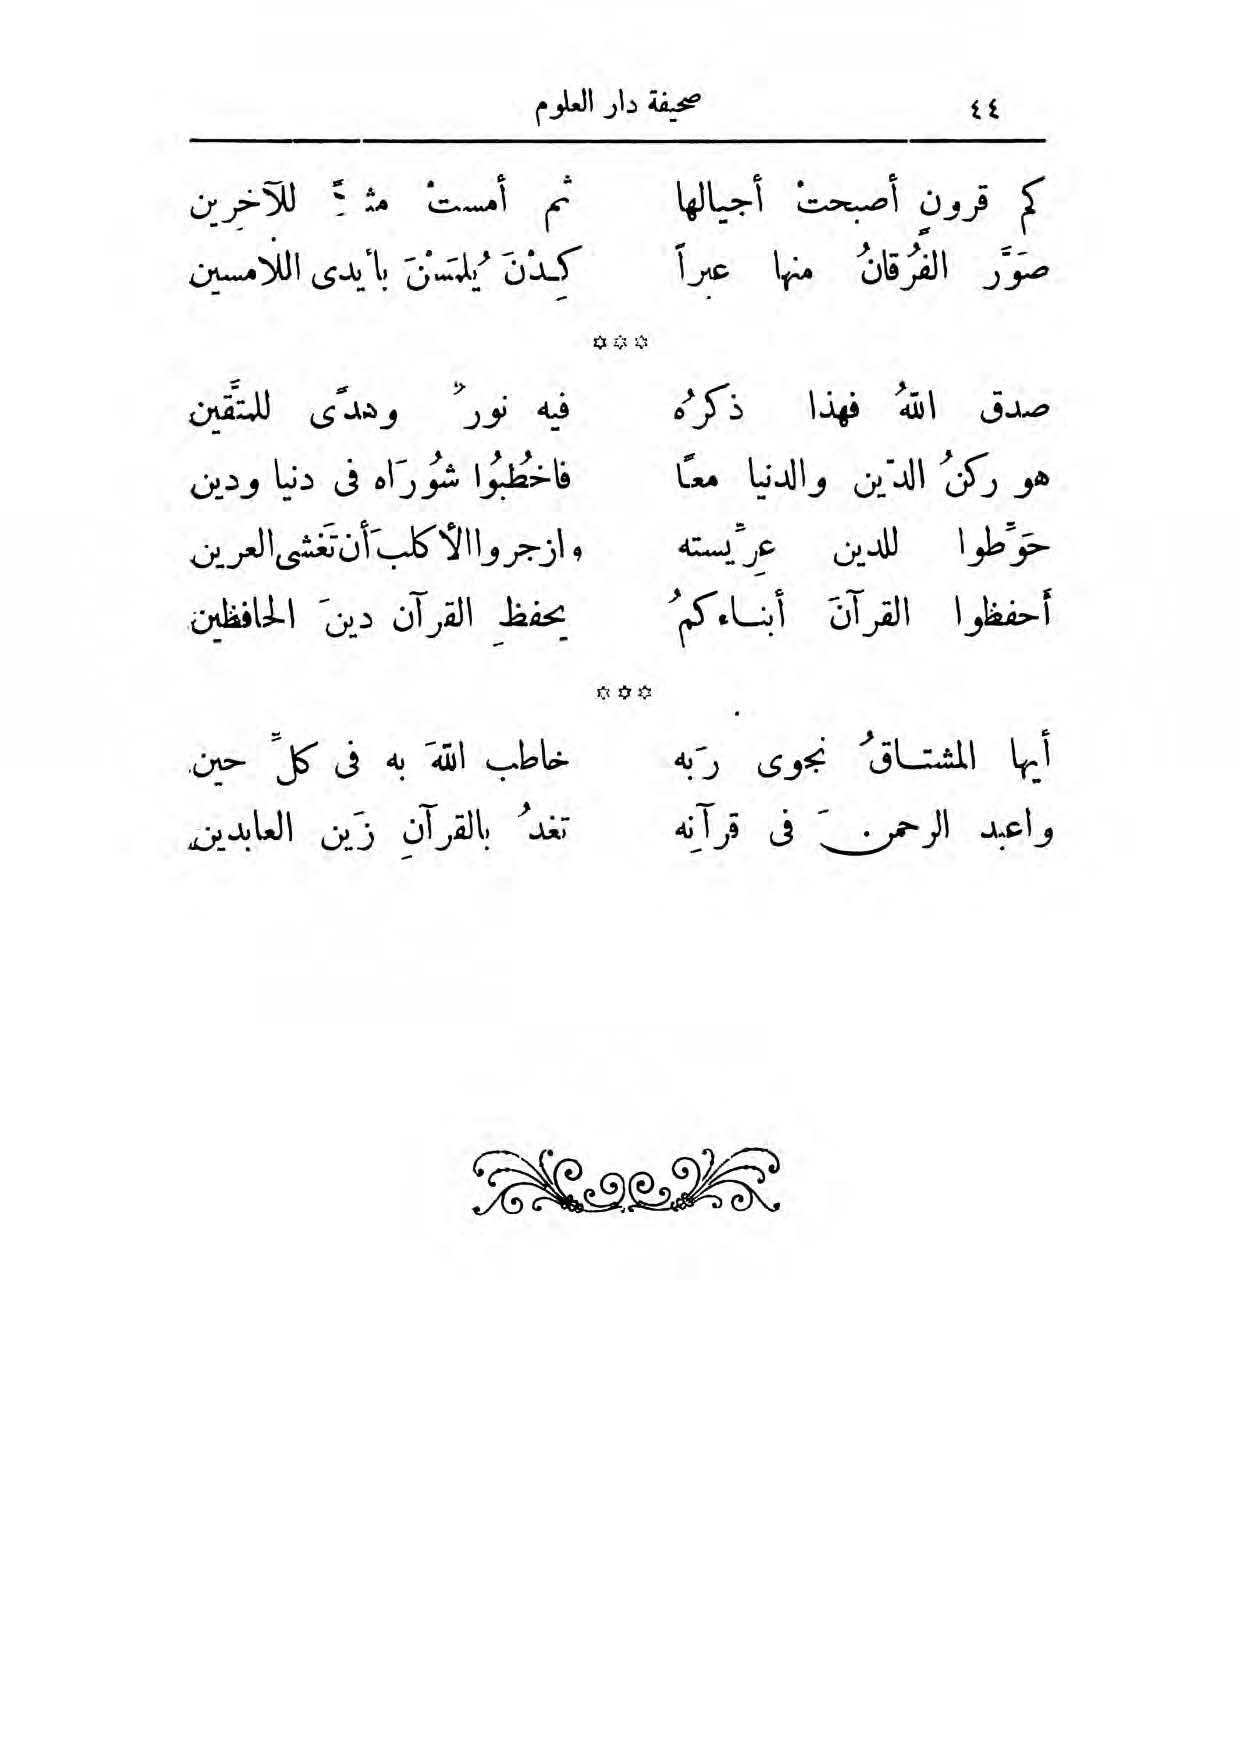 ٤٤ صحيفة دار العلوم
كم قرونٍ أصبحتْ أجيالها ثم أمستْ للآخِرين
صَوَّر الفُرقانُ منها عبراً كِدْنَ يُلمَسْنَ بأيدى اللامسين
***
صدق اللهُ فهذا ذكرُه فيه نورٌ وهدًى للمتَّقين
هو ركنُ الدّين والدنيا معًا فاخطُبُوا شُورَاه فى دنيا ودين
حَوِّطوا للدين عِرِّيسته وازجروا الأكلبَ أن تَغشى العرين
أَحفظوا القرآنَ أبناءكمُ يحفظِ القرآن دينَ الحافظين
***
أيها المشتاقُ نجوى رَبه خاطب اللهَ به فى كلِّ حين
واعبد الرحمنَ فى قرآنِه تغدُ بالقرآنِ زَين العابدين